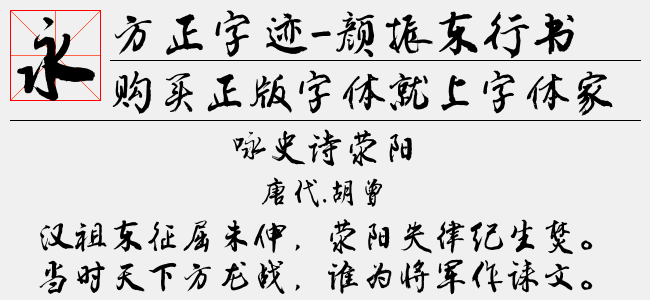 永
方正字迹-颜振东行书
购买正版字体就上字体家
咏史诗荥阳
唐代.胡曾
汉祖东征屈未伸，荥阳失律纪生焚。
当时天下方龙战，谁为将军作诔文。